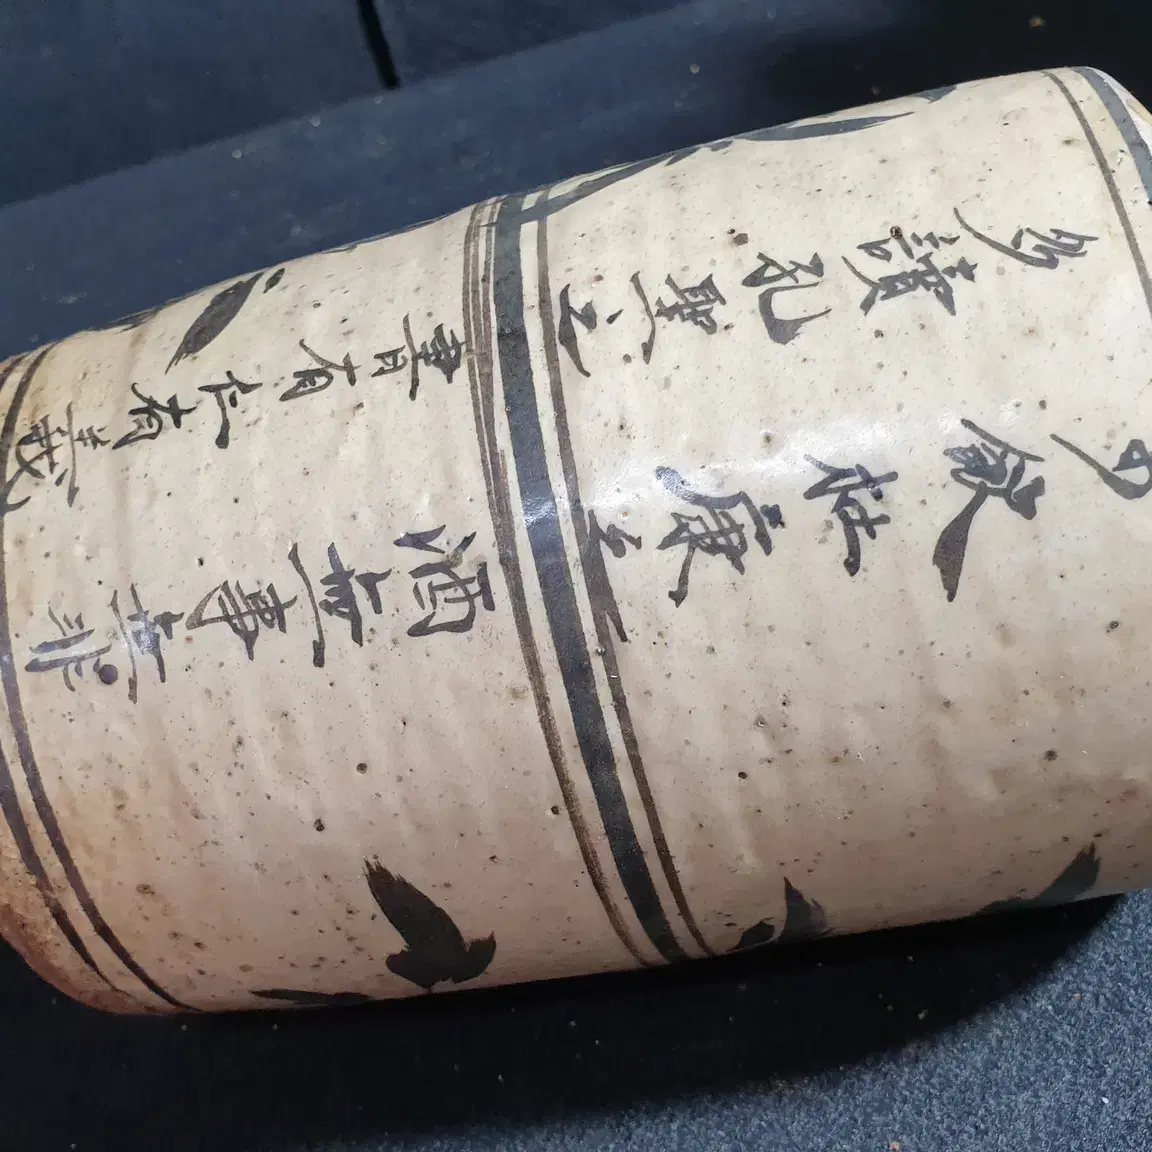 少飲杜康之酒無事無非
多讀孔聖之書有仁有義